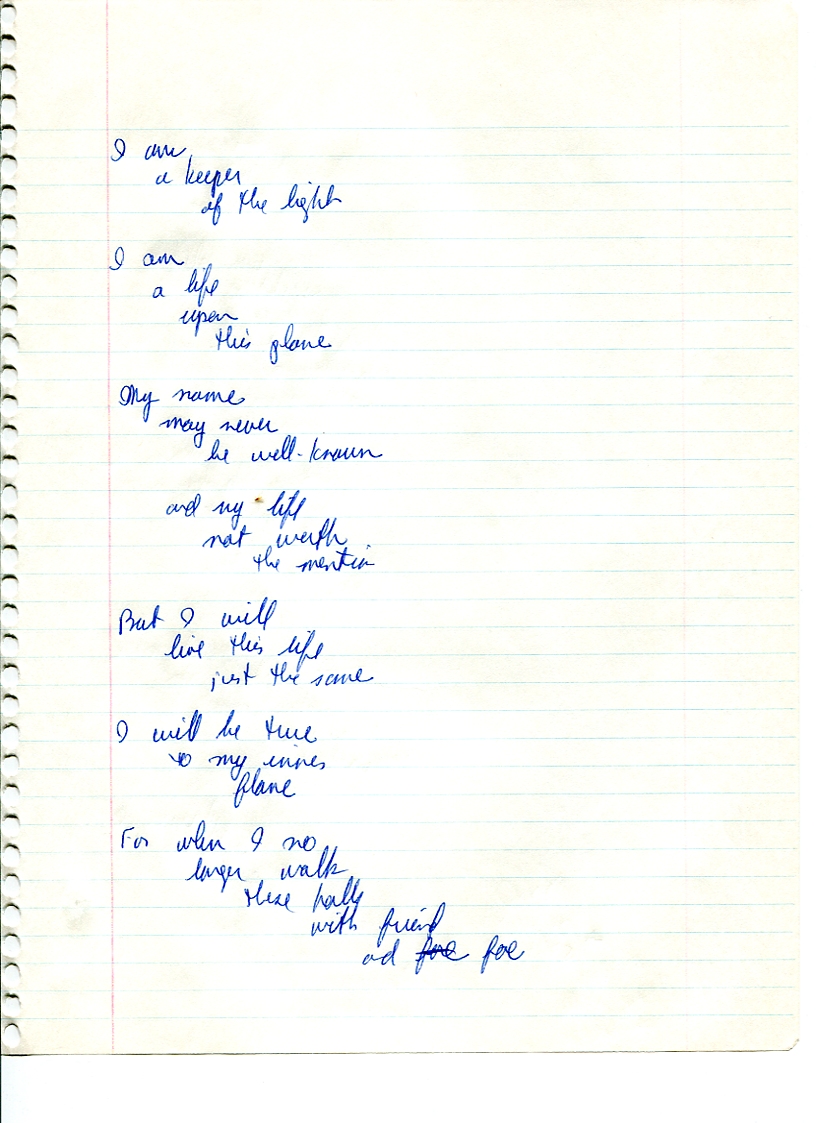 I am
a keeper
of the light
I am
a life
upon
this plane
My name
may never
be well-known
and my life
not worth
the mention
But I will
live this life
just the same
I will be true
to my inner
flame
For when I no
longer walk
these halls
with friend
and foe foe